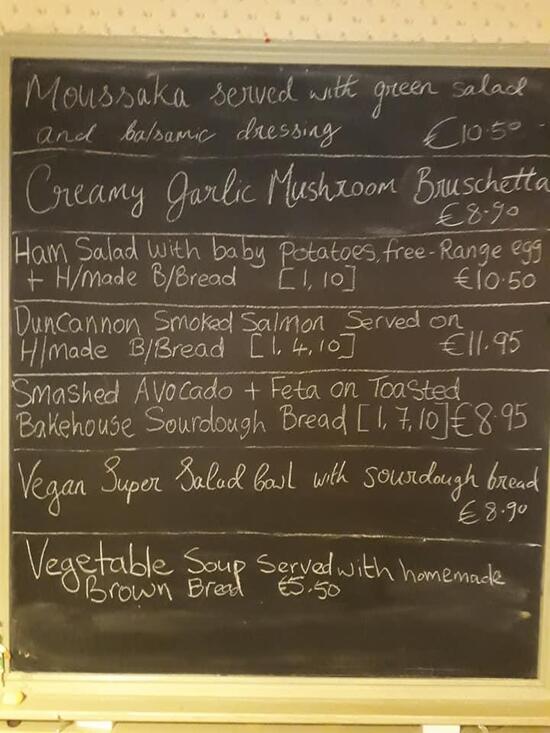 Moussaka served with green salad
and balsamic dressing €10.50
Creamy garlic Mushroom Bruschetta
€8.90
Ham Salad with baby Potatoes, free-Range egg
+ H/made B/Bread [1, 10] €10.50
Duncannon Smoked Salmon Served on
H/made B/Bread [1, 4, 10] €11.95
Smashed Avocado + Feta on Toasted
Bakehouse Sourdough Bread [1, 7, 10] €8.95
Vegan Super Salad Bowl with sourdough bread
€8.90
Vegetable Soup Served with homemade
Brown Bread €5.50